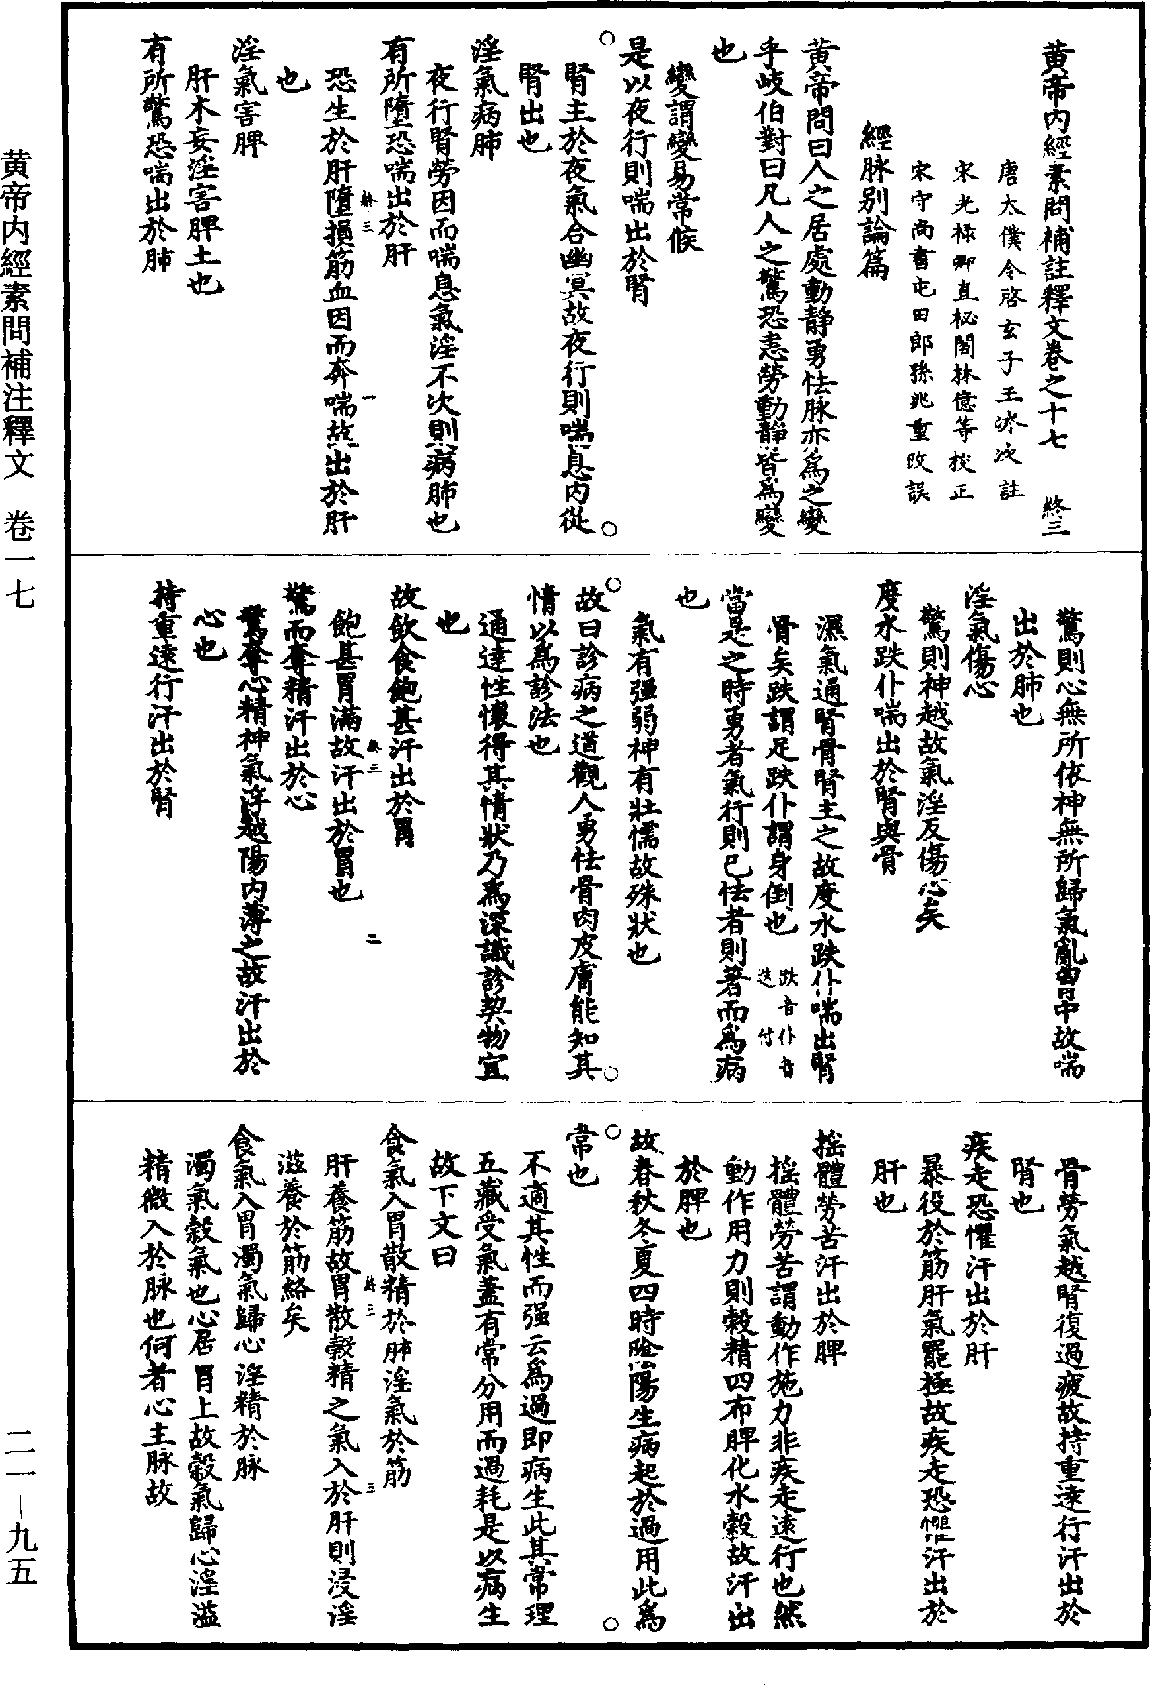 黄帝內經素問補註釋文卷之十七 終三
唐太僕令啓玄子王冰次註
宋光祿卿直秘閣林億等校正
宋守尚書屯田郎孫兆重改誤
經脉別論篇
黃帝問曰人之居處動靜勇怯脉亦爲之變
乎岐伯對曰凡人之驚恐恚勞動靜皆爲變
也
變謂變易常候
是以夜行則喘出於腎
腎主於夜氣合幽冥故夜行則喘息內從
腎出也
淫氣病肺
夜行腎勞因而喘息氣淫不次則病肺也
有所墮恐喘出於肝
恐生於肝墮損筋血因而奔喘故出於肝
終三 一
也
淫氣害脾
肝木妄淫害脾土也
有所驚恐喘出於肺
驚則心無所依神無所歸氣亂胷中故喘
出於肺也
淫氣傷心
驚則神越故氣淫反傷心矣
度水跌仆喘出於腎與骨
濕氣通腎骨腎主之故度水跌仆喘出腎
骨矣跌謂足跌仆謂身倒也 跌音迭仆音付
當是之時勇者氣行則已怯者則著而爲病
也
氣有强弱神有壯懦故殊狀也
故曰診病之道觀人勇怯骨肉皮膚能知其
情以爲診法也
通達性懷得其情狀乃爲深識診契物宜
也
故飲食飽甚汗出於胃
飽甚胃滿故汗出於胃也
終三 二
驚而奪精汗出於心
驚奪心精神氣浮越陽內薄之故汗出於
心也
持重遠行汗出於腎
骨勞氣越腎復過疲故持重遠行汗出於
腎也
疾走恐懼汗出於肝
暴役於筋肝氣罷極故疾走恐懼汗出於
肝也
揺體勞苦汗出於脾
揺體勞苦謂動作施力非疾走遠行也然
動作用力則穀精四布脾化水穀故汗出
於脾也
故春秋冬夏四時陰陽生病起於過用此爲
常也
不適其性而强云爲過即病生此其常理
五藏受氣蓋有常分用而過耗是以病生
故下文曰
食氣入胃散精於肺淫氣於筋
終三 三
肝養筋故胃散穀精之氣入於肝則浸淫
滋養於筋絡矣
食氣入胃濁氣歸心淫精於脉
濁氣穀氣也心居胃上故穀氣歸心淫溢
精微入於脉也何者心主脉故
黄帝內經素問補注釋文 卷一七
二一—九五